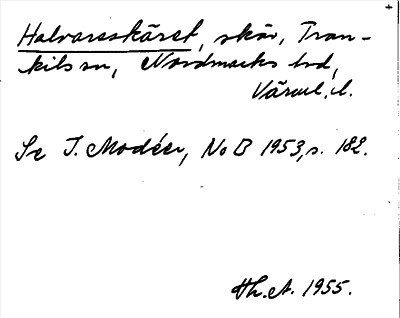 Halvarsskäret, skär, Tran-
kils sn, Nordmarks hd,
Värml. l.
Se I. Modéer, NoB 1953, s. 182.
Th. A. 1955.